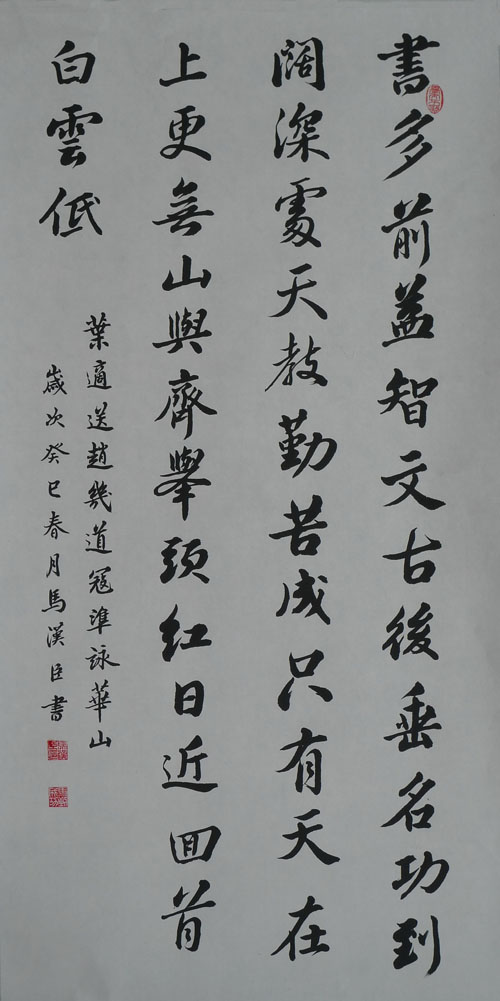 書多前益智文古後垂名功到
闊深處天教勤苦成只有天在
上更無山與齊舉頭紅日近回首
白雲低
葉適送趙幾道寇準詠華山
歲次癸巳春月馬漢臣書